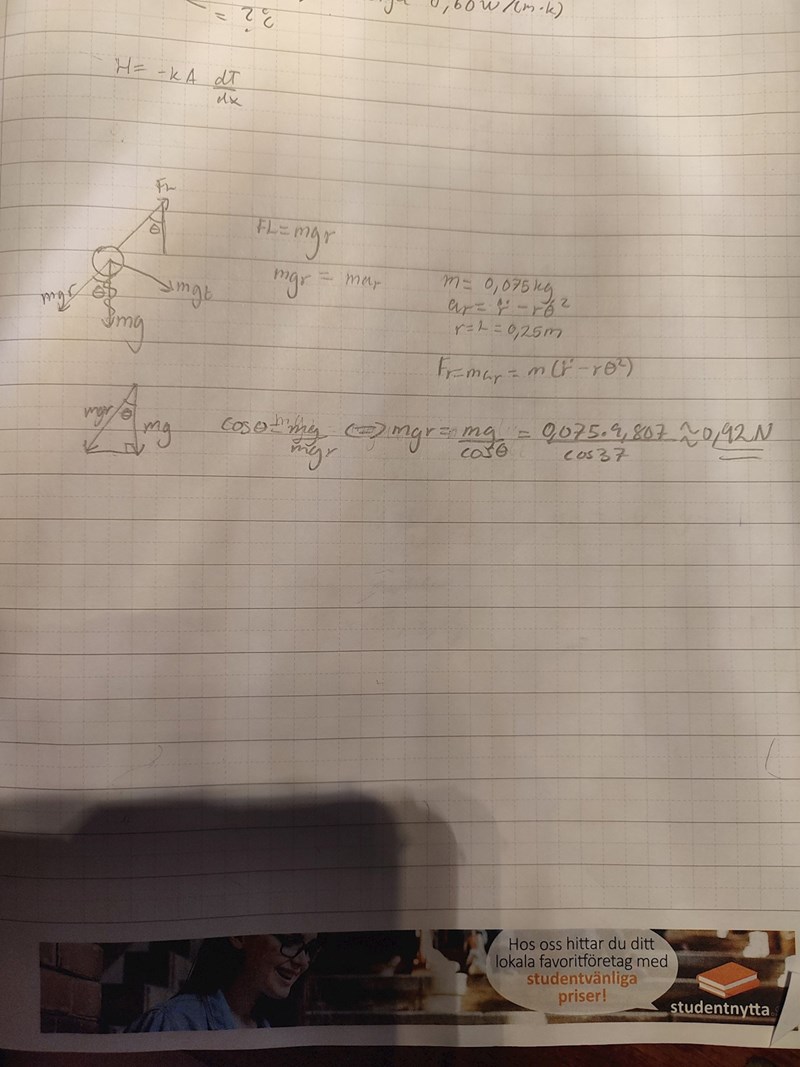 0,60 W/(m·k)
= ?
H = -kA dT/dx
FL
θ
FL = mgr
mgr = mar
mgr
θ
mgt
mg
m = 0,075kg
ar = r̈ - rθ̇²
r = L = 0,25m
Fr = mar = m(r̈ - rθ²)
mgr θ mg
cosθ = mg/mgr <=> mgr = mg/cosθ = 0,075·9,807/cos37 ≈ 0,92 N
Hos oss hittar du ditt
lokala favoritföretag med
studentvänliga
priser!
studentnytta